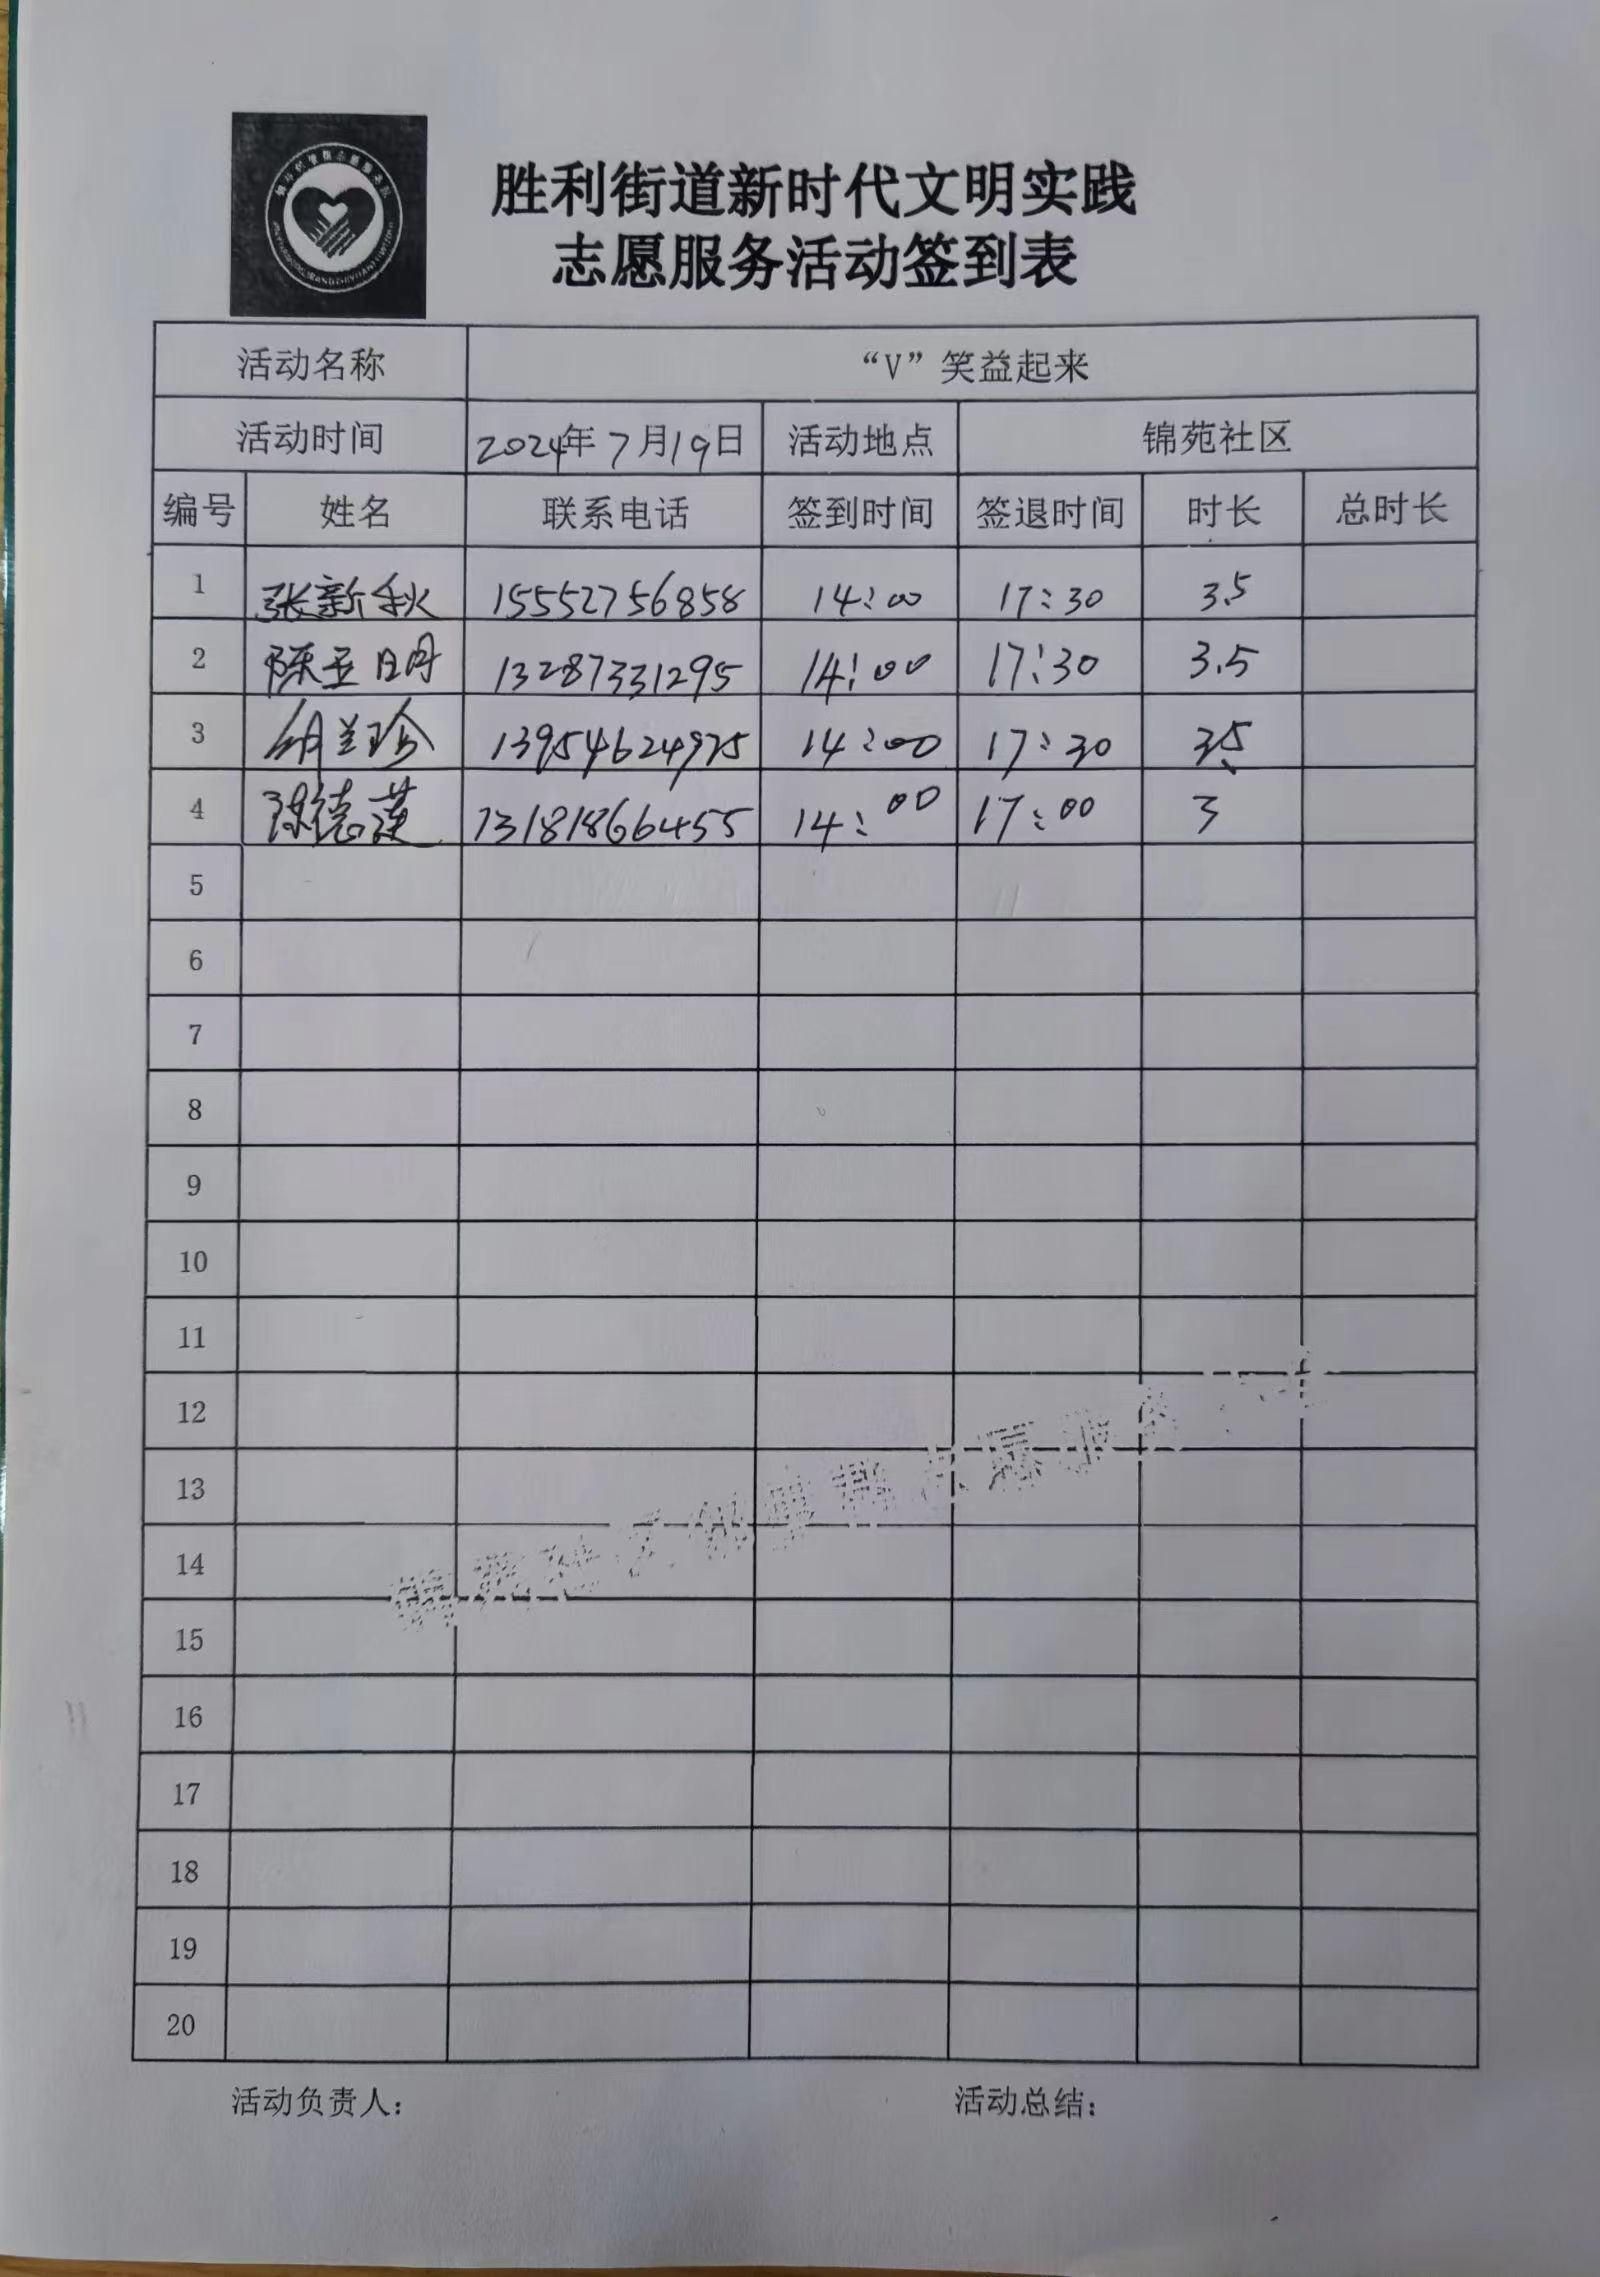 胜利街道新时代文明实践
志愿服务活动签到表
活动名称 “V”笑益起来
活动时间 2024年7月19日 活动地点 锦苑社区
编号 姓名 联系电话 签到时间 签退时间 时长 总时长
1 张新秋 15552756858 14:00 17:30 3.5
2 陈亚明 13287331295 14:00 17:30 3.5
3 胡兰珍 13954624975 14:00 17:30 3.5
4 陈德莲 13181866455 14:00 17:00 3
5
6
7
8
9
10
11
12
13
14
15
16
17
18
19
20
活动负责人： 活动总结：